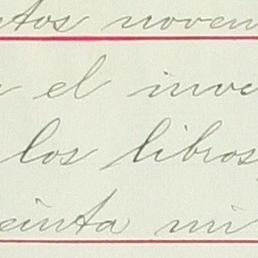 ntos noven
el inve
los libros,
cinta mi